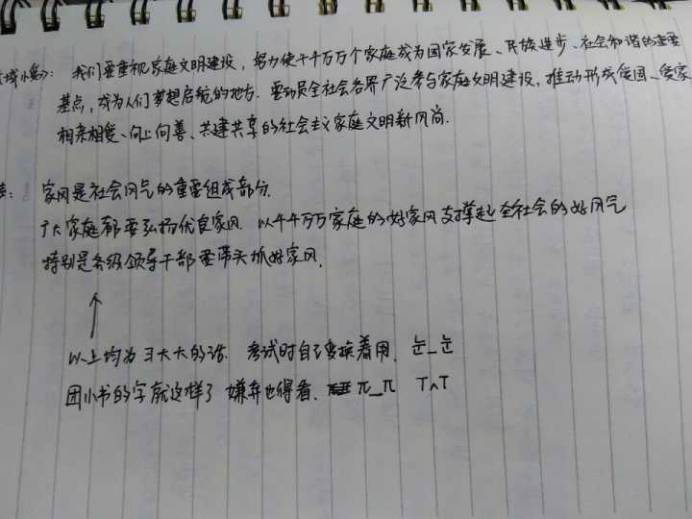 我们要重视家庭文明建设，努力使千千万万个家庭成为国家发展、民族进步、社会和谐的重要
基点，成为人们梦想启航的地方.要动员全社会各界广泛参与家庭文明建设，推动形成爱国、爱家
相亲相爱、向上向善、共建共享的社会主义家庭文明新风尚.
家风是社会风气的重要组成部分.
广大家庭都要弘扬优良家风.以千千万万家庭的好家风支撑起全社会的好风气
特别是各级领导干部要带头抓好家风.
以上均为习大大的话.考试时自己变换着用.눈_눈
团小书的字就这样了 嫌弃也得看. π_π T^T